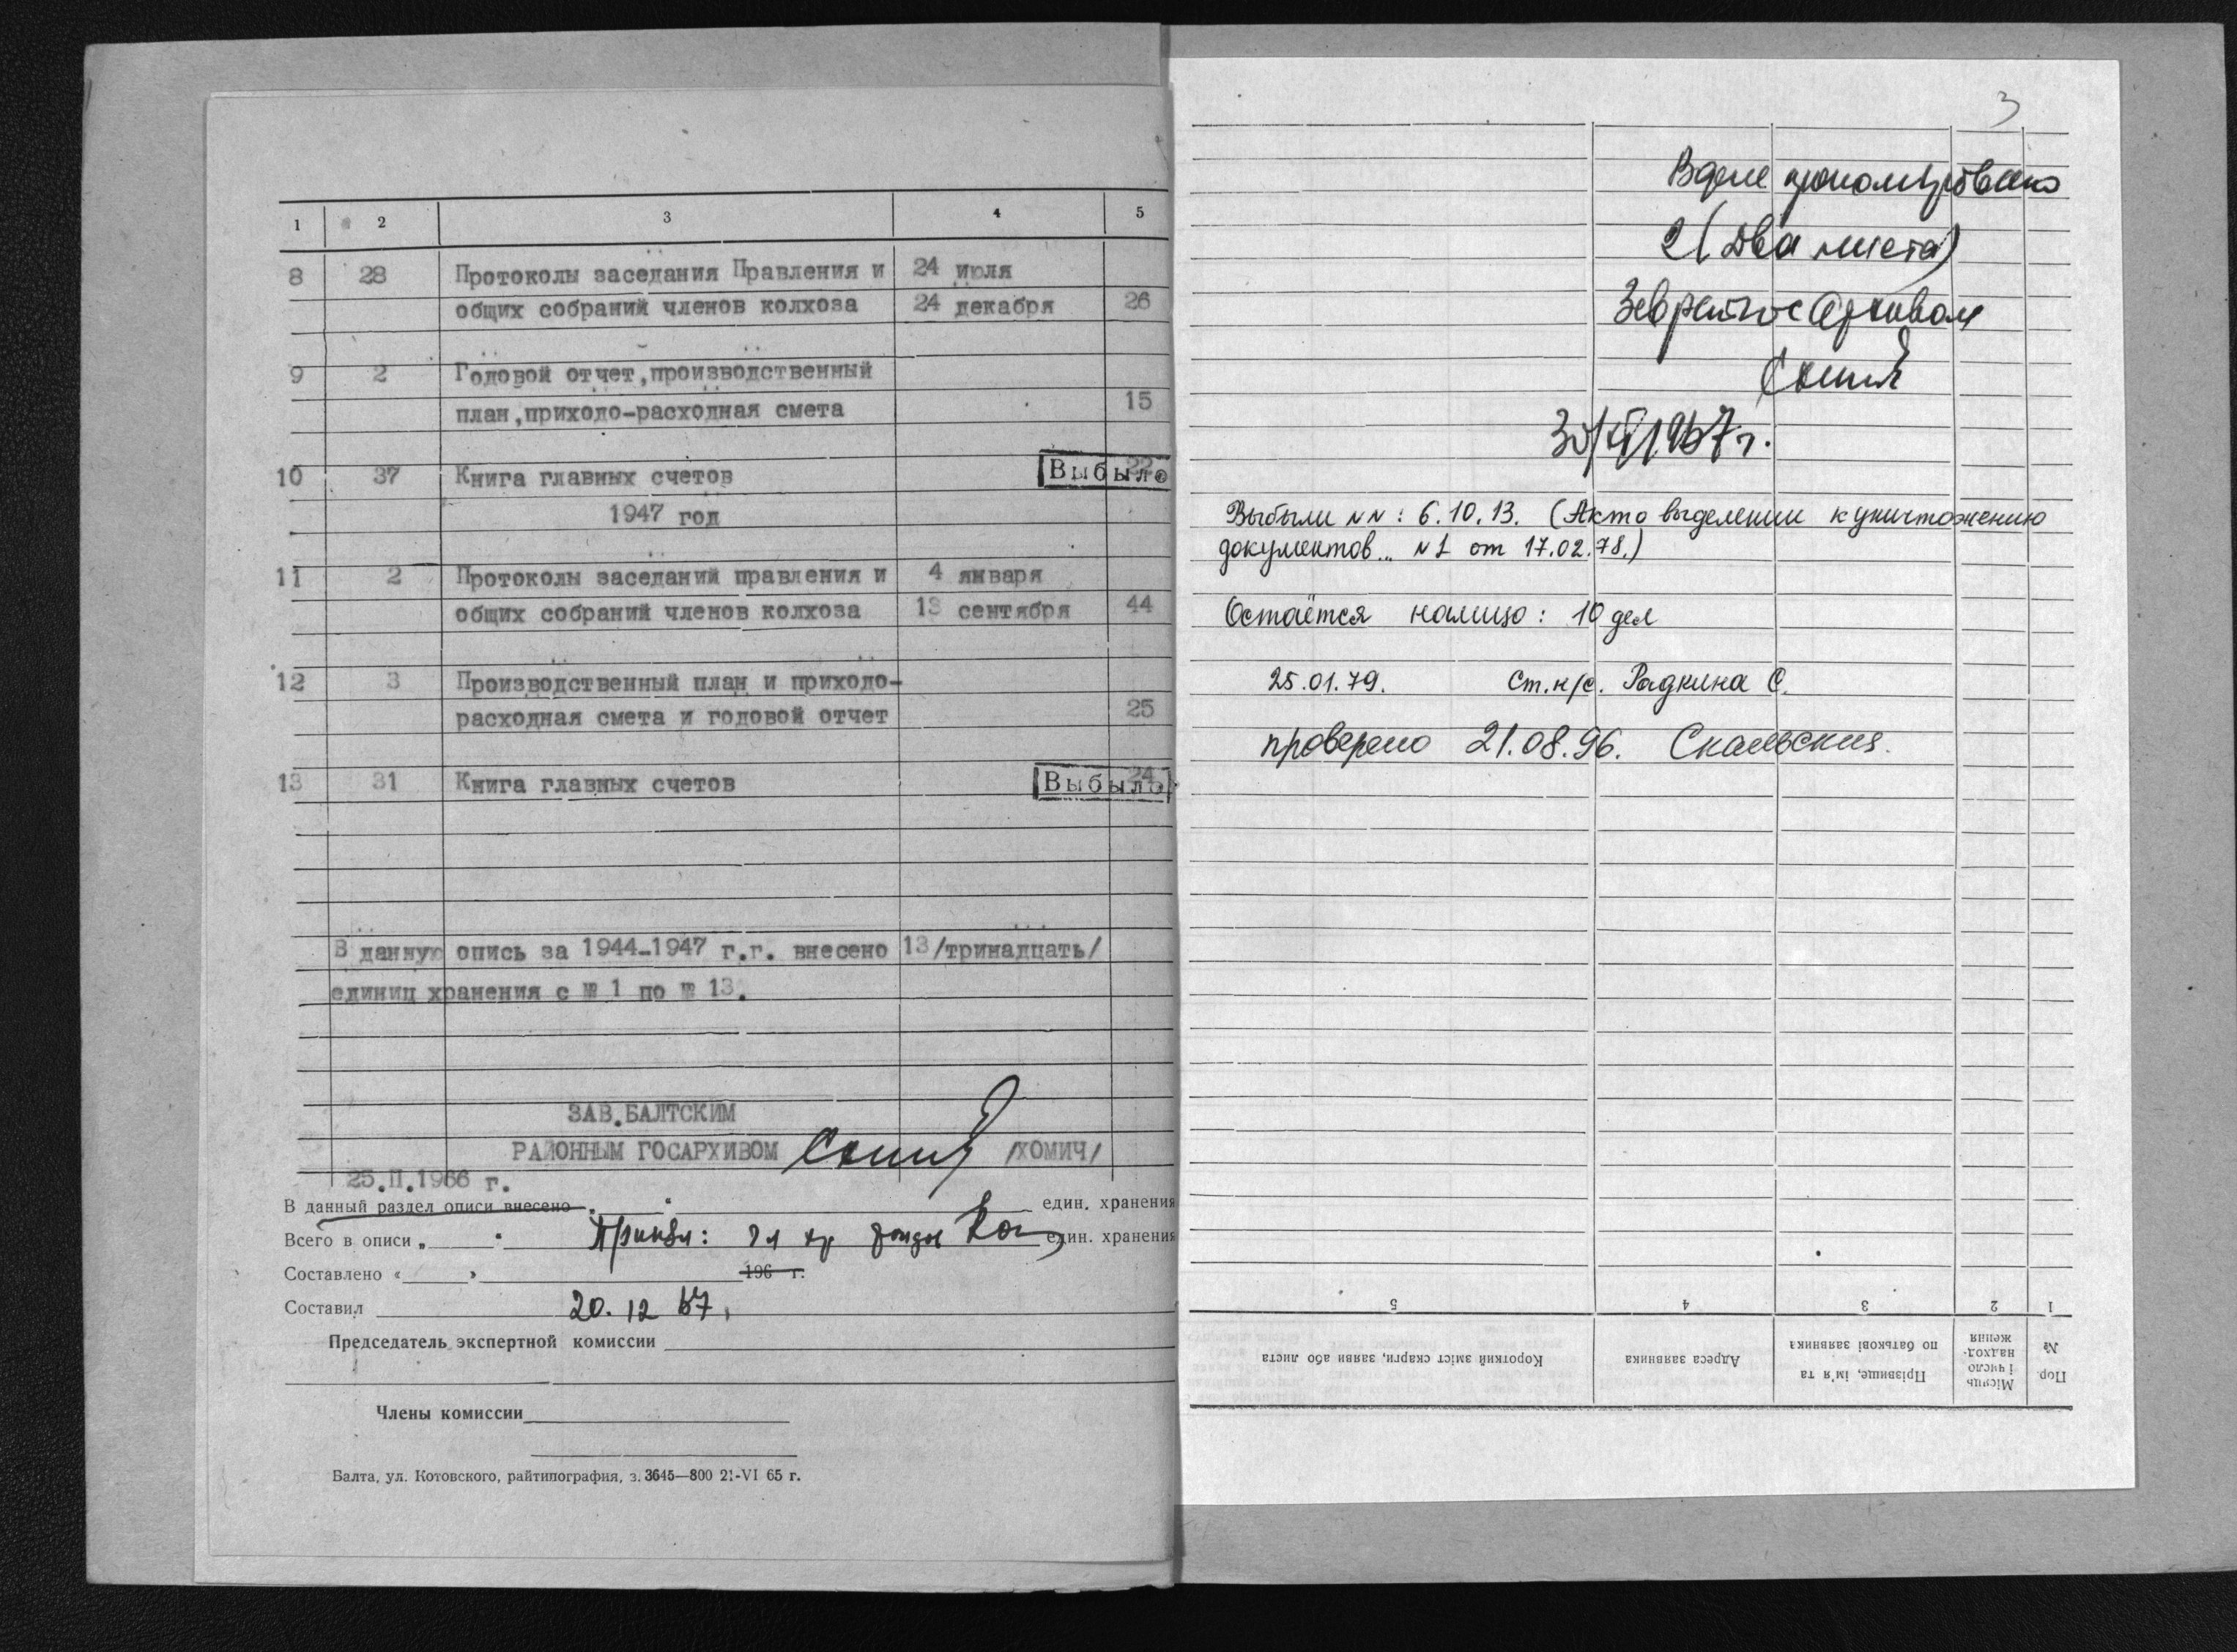 1 2 3 4 5
8 28 Протоколы заседания Правления и 24 июля
общих собраний членов колхоза 24 декабря 26
9 2 Годовой отчет,производственный
план,приходо-расходная смета 15
10 37 Книга главных счетов 22 Выбыло
1947 год
11 2 Протоколы заседаний правления и 4 января
общих собраний членов колхоза 13 сентября 44
12 3 Производственный план и приходо-
расходная смета и годовой отчет 25
13 31 Книга главных счетов 24 Выбыло
В данную опись за 1944-1947 г.г. внесено 13/тринадцать/
единиц хранения с № 1 по № 13.
ЗАВ.БАЛТСКИМ
РАЙОННЫМ ГОСАРХИВОМ /ХОМИЧ/
25.II.1966 г.
В данный раздел описи внесено „ “ един. хранения
Всего в описи „ “ един. хранения
Составлено « » 196 г.
Составил 20.12 67.
Председатель экспертной комиссии
Члены комиссии
Балта, ул. Котовского, райтипография, з. 3645—800 21-VI 65 г.
3
В деле пронумеровано
2 (два листа)
Зав райгосархивом
1967 г.
Выбыли NN: 6.10.13. (Акт о выделении к уничтожению
документов... N1 от 17.02.78.)
Остаётся налицо: 10 дел
25.01.79. Ст.н/с. Радкина С.
проверено 21.08.96. Скальский.
1 2 3 4 5
Пор. № Місяць і число надход-ження Прізвище, ім'я та по батькові заявника Адреса заявника Короткий зміст скарги, заяви або листа